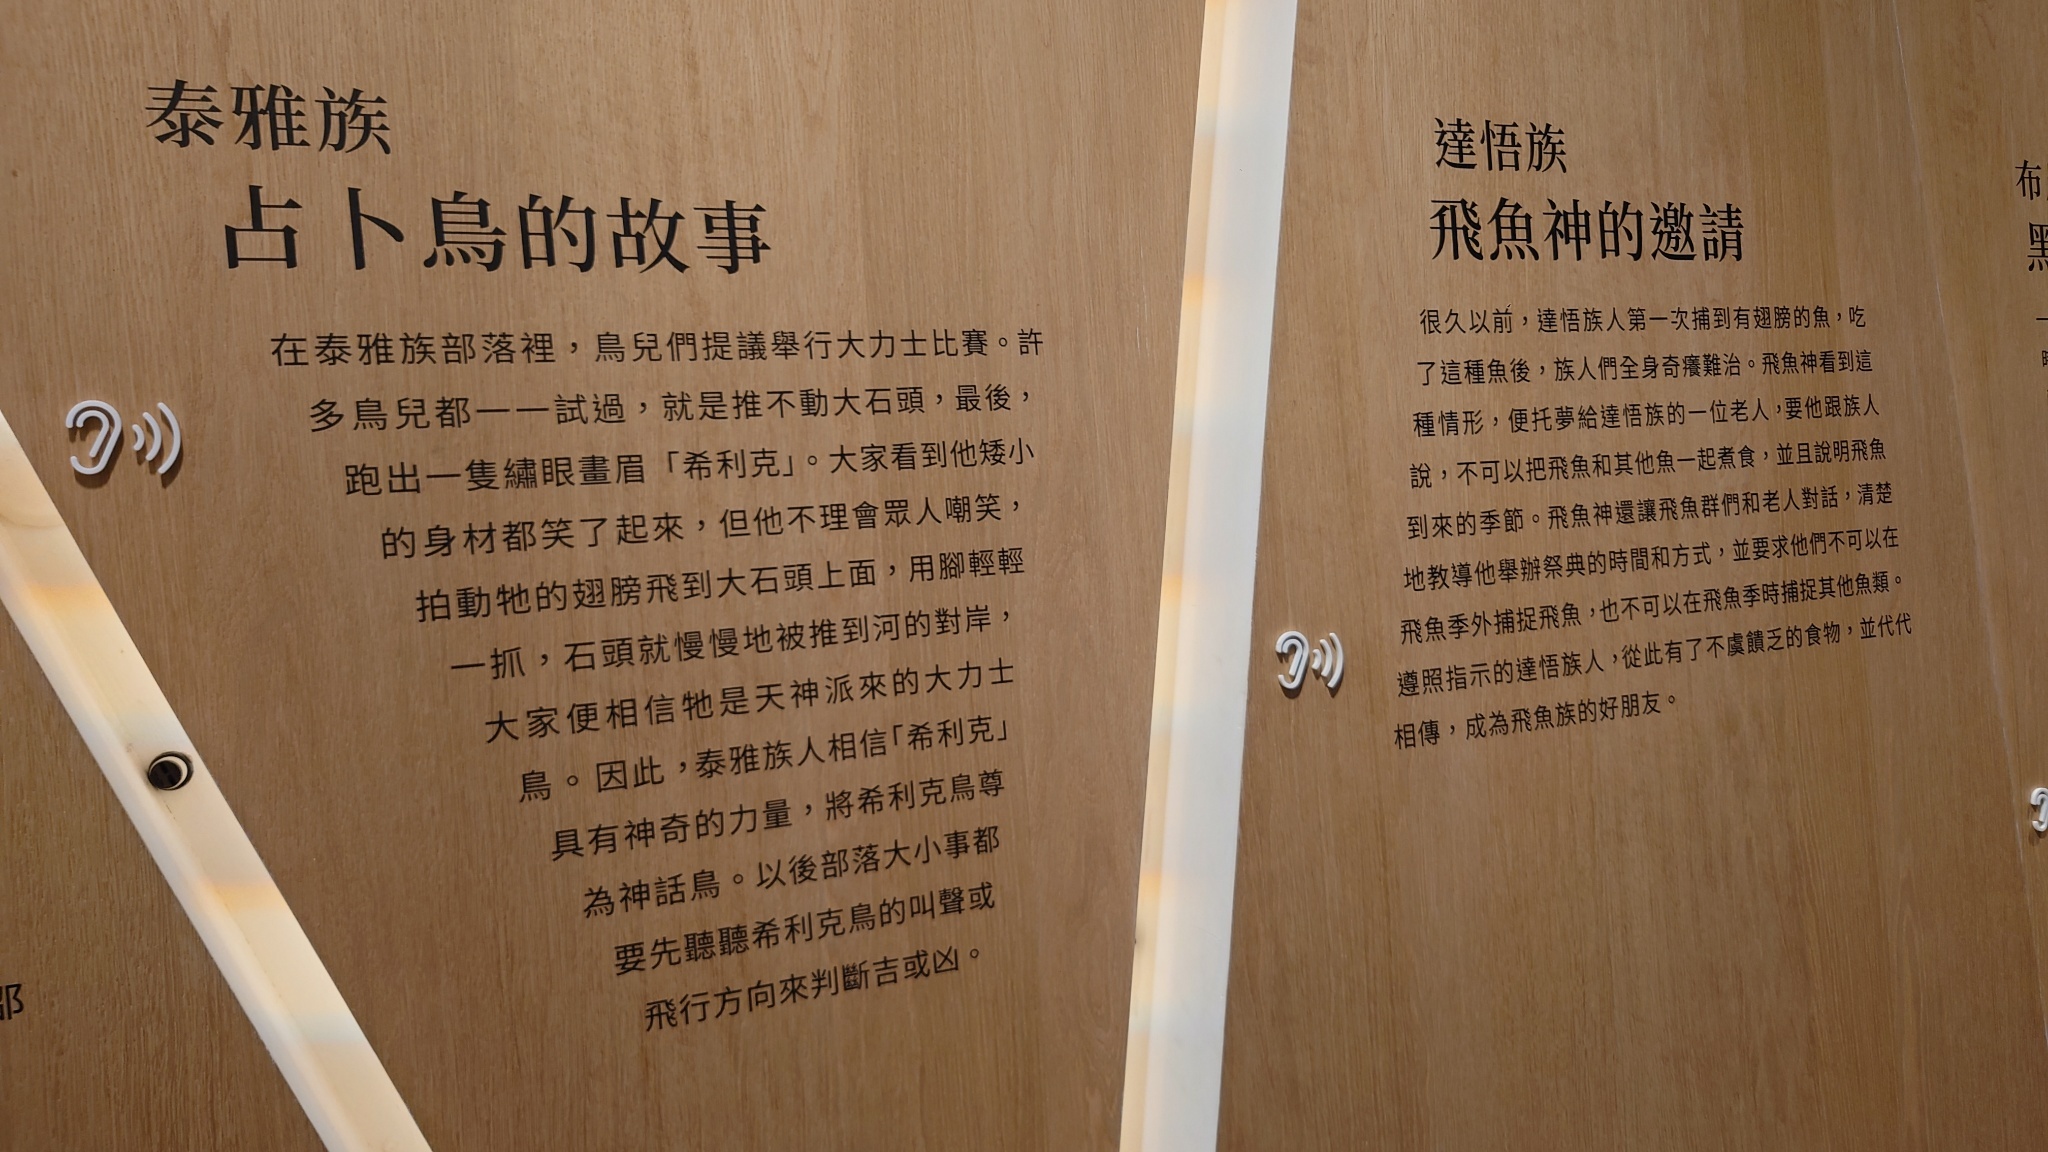 泰雅族
占卜鳥的故事
在泰雅族部落裡，鳥兒們提議舉行大力士比賽。許
多鳥兒都一一試過，就是推不動大石頭，最後，
跑出一隻繡眼畫眉「希利克」。大家看到他矮小
的身材都笑了起來，但他不理會眾人嘲笑，
拍動牠的翅膀飛到大石頭上面，用腳輕輕
一抓，石頭就慢慢地被推到河的對岸，
大家便相信牠是天神派來的大力士
鳥。因此，泰雅族人相信「希利克」
具有神奇的力量，將希利克鳥尊
為神話鳥。以後部落大小事都
要先聽聽希利克鳥的叫聲或
飛行方向來判斷吉或凶。
達悟族
飛魚神的邀請
很久以前，達悟族人第一次捕到有翅膀的魚，吃
了這種魚後，族人們全身奇癢難治。飛魚神看到這
種情形，便托夢給達悟族的一位老人，要他跟族人
說，不可以把飛魚和其他魚一起煮食，並且說明飛魚
到來的季節。飛魚神還讓飛魚群們和老人對話，清楚
地教導他舉辦祭典的時間和方式，並要求他們不可以在
飛魚季外捕捉飛魚，也不可以在飛魚季時捕捉其他魚類。
遵照指示的達悟族人，從此有了不虞饋乏的食物，並代代
相傳，成為飛魚族的好朋友。
布
黑